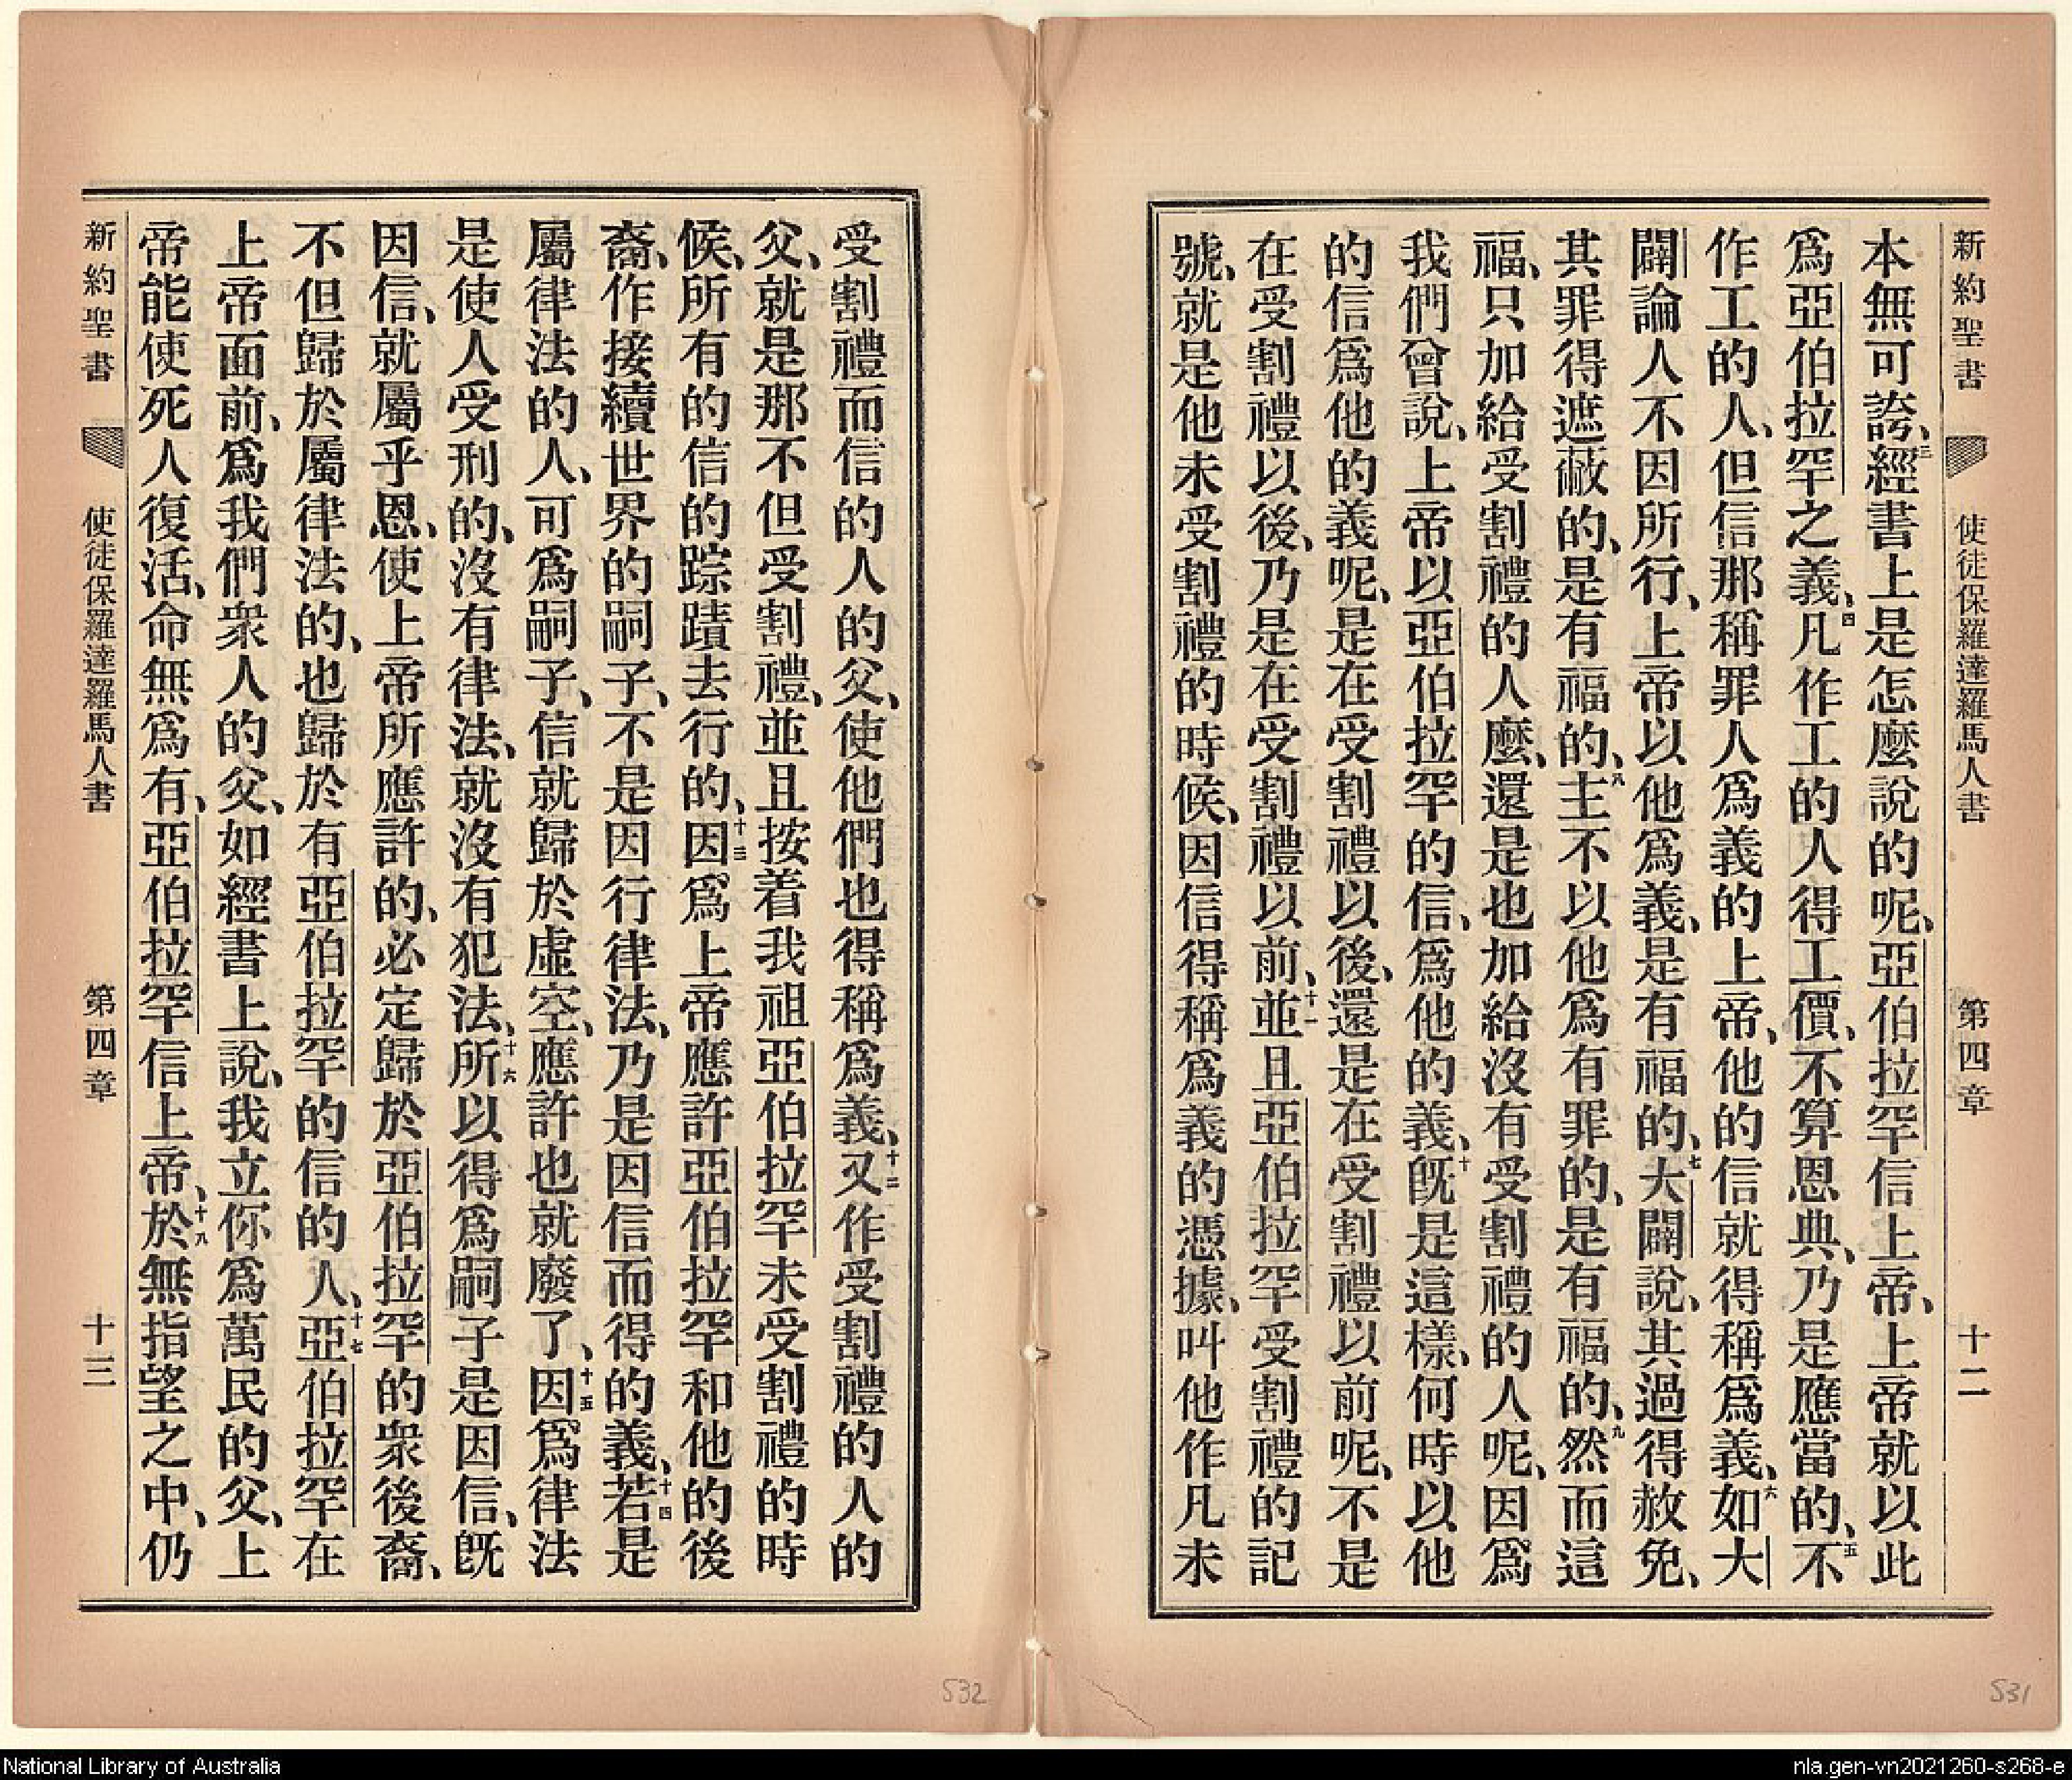 新約聖書 使徒保羅達羅馬人書 第四章 十二
本無可誇、三經書上是怎麼說的呢、亞伯拉罕信上帝、上帝就以此
爲亞伯拉罕之義、四凡作工的人得工價、不算恩典、乃是應當的、五不
作工的人、但信那稱罪人爲義的上帝、他的信就得稱爲義、六如大
闢論人不因所行、上帝以他爲義、是有福的、七大闢說、其過得赦免、
其罪得遮蔽的、是有福的、八主不以他爲有罪的、是有福的、九然而這
福、只加給受割禮的人麼、還是也加給沒有受割禮的人呢、因爲
我們曾說、上帝以亞伯拉罕的信、爲他的義、十旣是這樣、何時以他
的信爲他的義呢、是在受割禮以後、還是在受割禮以前呢、不是
在受割禮以後、乃是在受割禮以前、十一並且亞伯拉罕受割禮的記
號、就是他未受割禮的時候、因信得稱爲義的憑據、叫他作凡未
受割禮而信的人的父、使他們也得稱爲義、十二又作受割禮的人的
父、就是那不但受割禮、並且按着我祖亞伯拉罕未受割禮的時
候、所有的信的踪蹟去行的、十三因爲上帝應許亞伯拉罕和他的後
裔、作接續世界的嗣子、不是因行律法、乃是因信而得的義、十四若是
屬律法的人、可爲嗣子、信就歸於虛空、應許也就廢了、十五因爲律法
是使人受刑的、沒有律法、就沒有犯法、十六所以得爲嗣子是因信、旣
因信、就屬乎恩、使上帝所應許的、必定歸於亞伯拉罕的衆後裔、
不但歸於屬律法的、也歸於有亞伯拉罕的信的人、十七亞伯拉罕在
上帝面前、爲我們衆人的父、如經書上說、我立你爲萬民的父、上
帝能使死人復活、命無爲有、亞伯拉罕信上帝、十八於無指望之中、仍
新約聖書 使徒保羅達羅馬人書 第四章 十三
532
531
National Library of Australia
nla.gen-vn2021260-s268-e